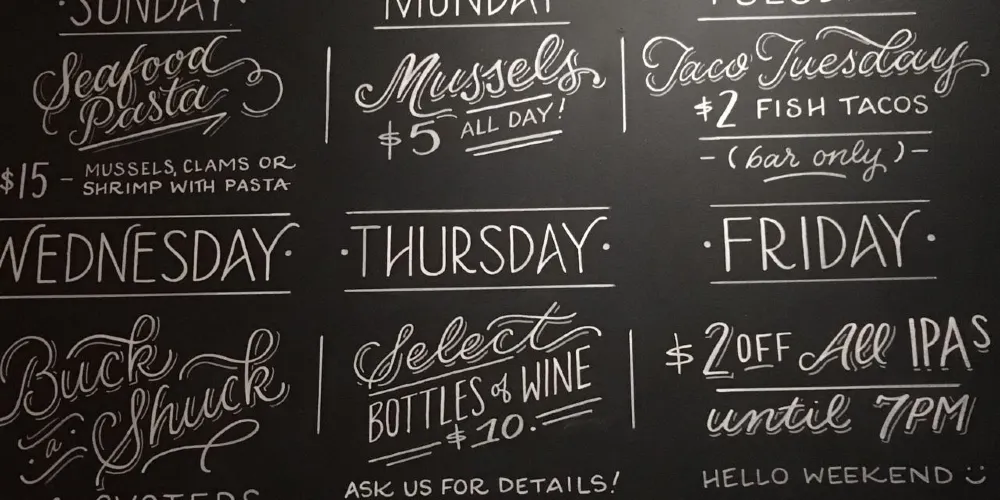 SUNDAY
Seafood
Pasta
$15 - MUSSELS, CLAMS OR
SHRIMP WITH PASTA
MUNDAY
Mussels
$5 ALL DAY!
TUESDAY
Taco Tuesday
$2 FISH TACOS
- (bar only) -
WEDNESDAY·
Buck
·a·
Shuck
OYSTERS
·THURSDAY·
Select
BOTTLES of WINE
$10.
ASK US FOR DETAILS!
·FRIDAY·
$2 OFF All IPAS
until 7PM
HELLO WEEKEND :)